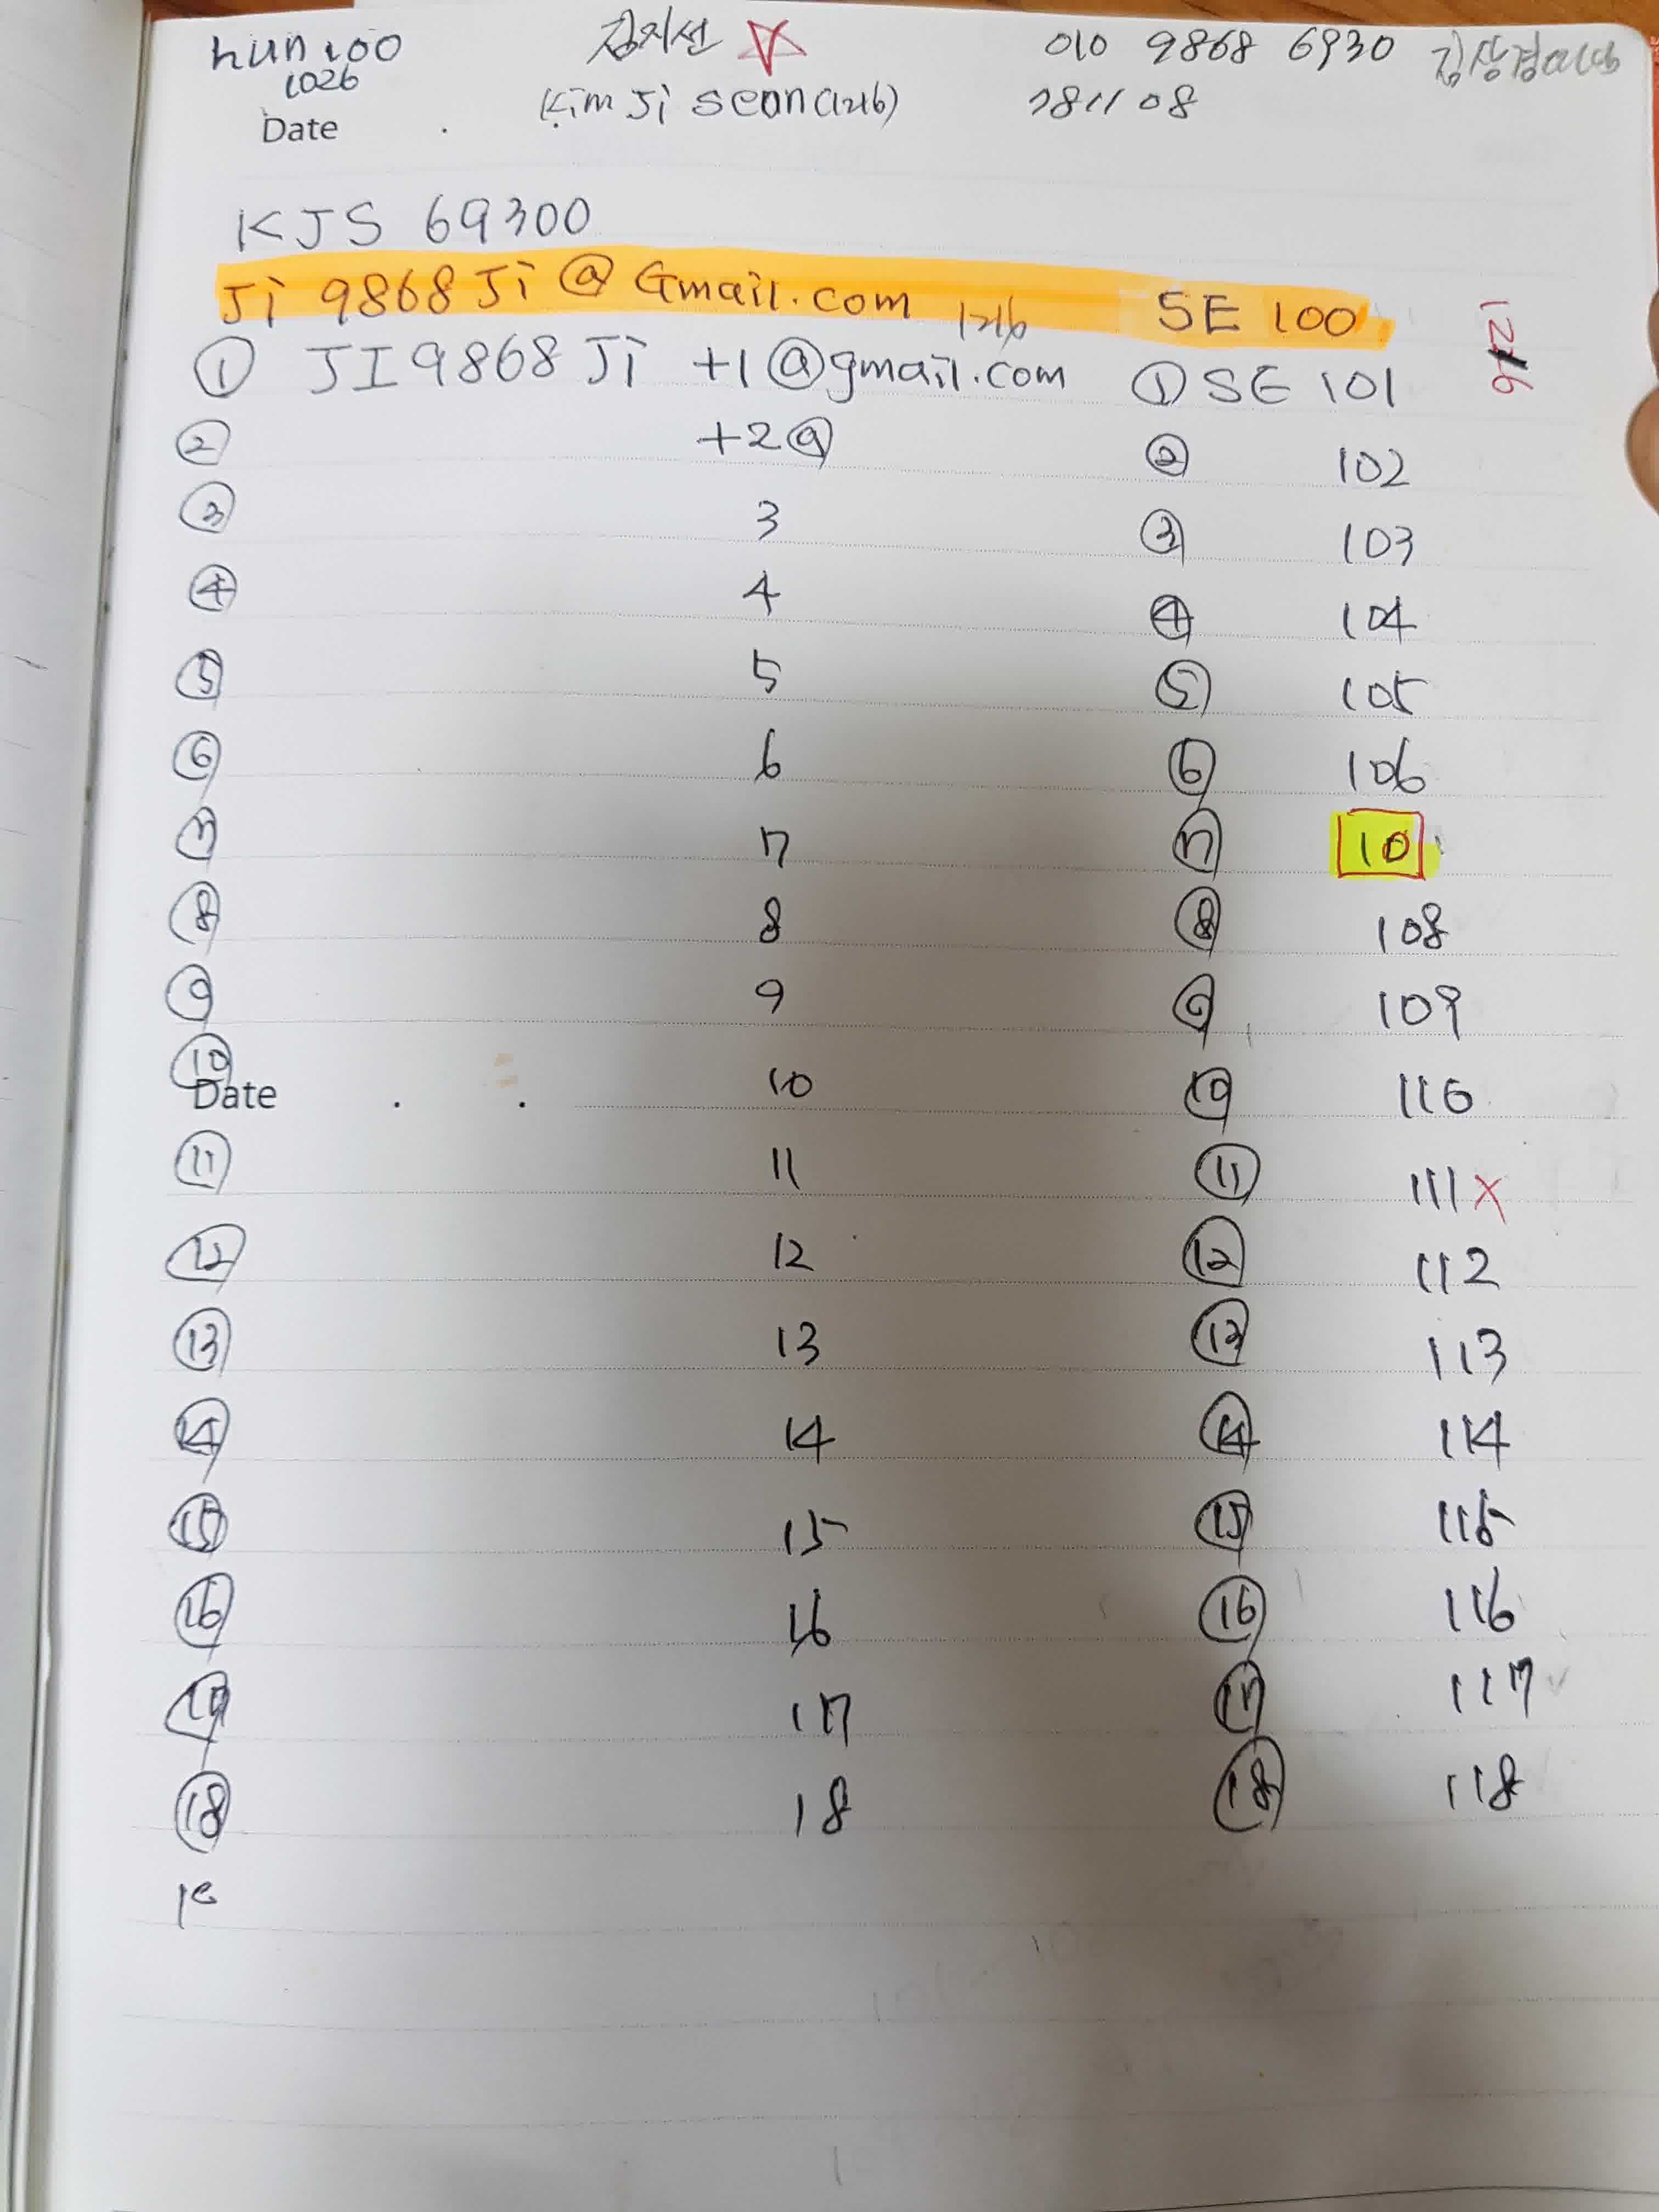 hun100 김지선 010 9868 6930
1026 Kim Ji Seon(1216) 781108
Date .
KJS 69300
Ji 9868 Ji @ Gmail.com 1216 SE 100
1216
① JI 9868 Ji +1@gmail.com ① SE 101
② +2@ ② 102
③ 3 ③ 103
④ 4 ④ 104
⑤ 5 ⑤ 105
⑥ 6 ⑥ 106
⑦ 7 ⑦ 10
⑧ 8 ⑧ 108
⑨ 9 ⑨ 109
⑩ 10 ⑩ 110
Date . .
⑪ 11 ⑪ 111 X
⑫ 12 ⑫ 112
⑬ 13 ⑬ 113
⑭ 14 ⑭ 114
⑮ 15 ⑮ 115
⑯ 16 ⑯ 116
⑰ 17 ⑰ 117
⑱ 18 ⑱ 118